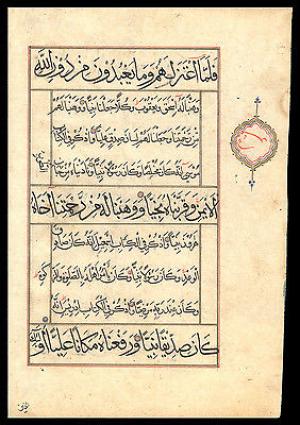 فلما اعتزلهم وما يعبدون من دون الله
وهبنا له اسحق ويعقوب وكلا جعلنا نبيا ووهبنا لهم
من رحمتنا وجعلنا لهم لسان صدق عليا واذكر في الكتاب
موسى انه كان مخلصا وكان رسولا نبيا وناديناه من جانب الطور
الايمن وقربناه نجيا ووهبنا له من رحمتنا اخاه
هرون نبيا واذكر في الكتاب اسمعيل انه كان صادق
الوعد وكان رسولا نبيا وكان يأمر اهله بالصلوة والزكوة
وكان عند ربه مرضيا واذكر في الكتاب ادريس انه
كان صديقا نبيا ورفعناه مكانا عليا اولئك